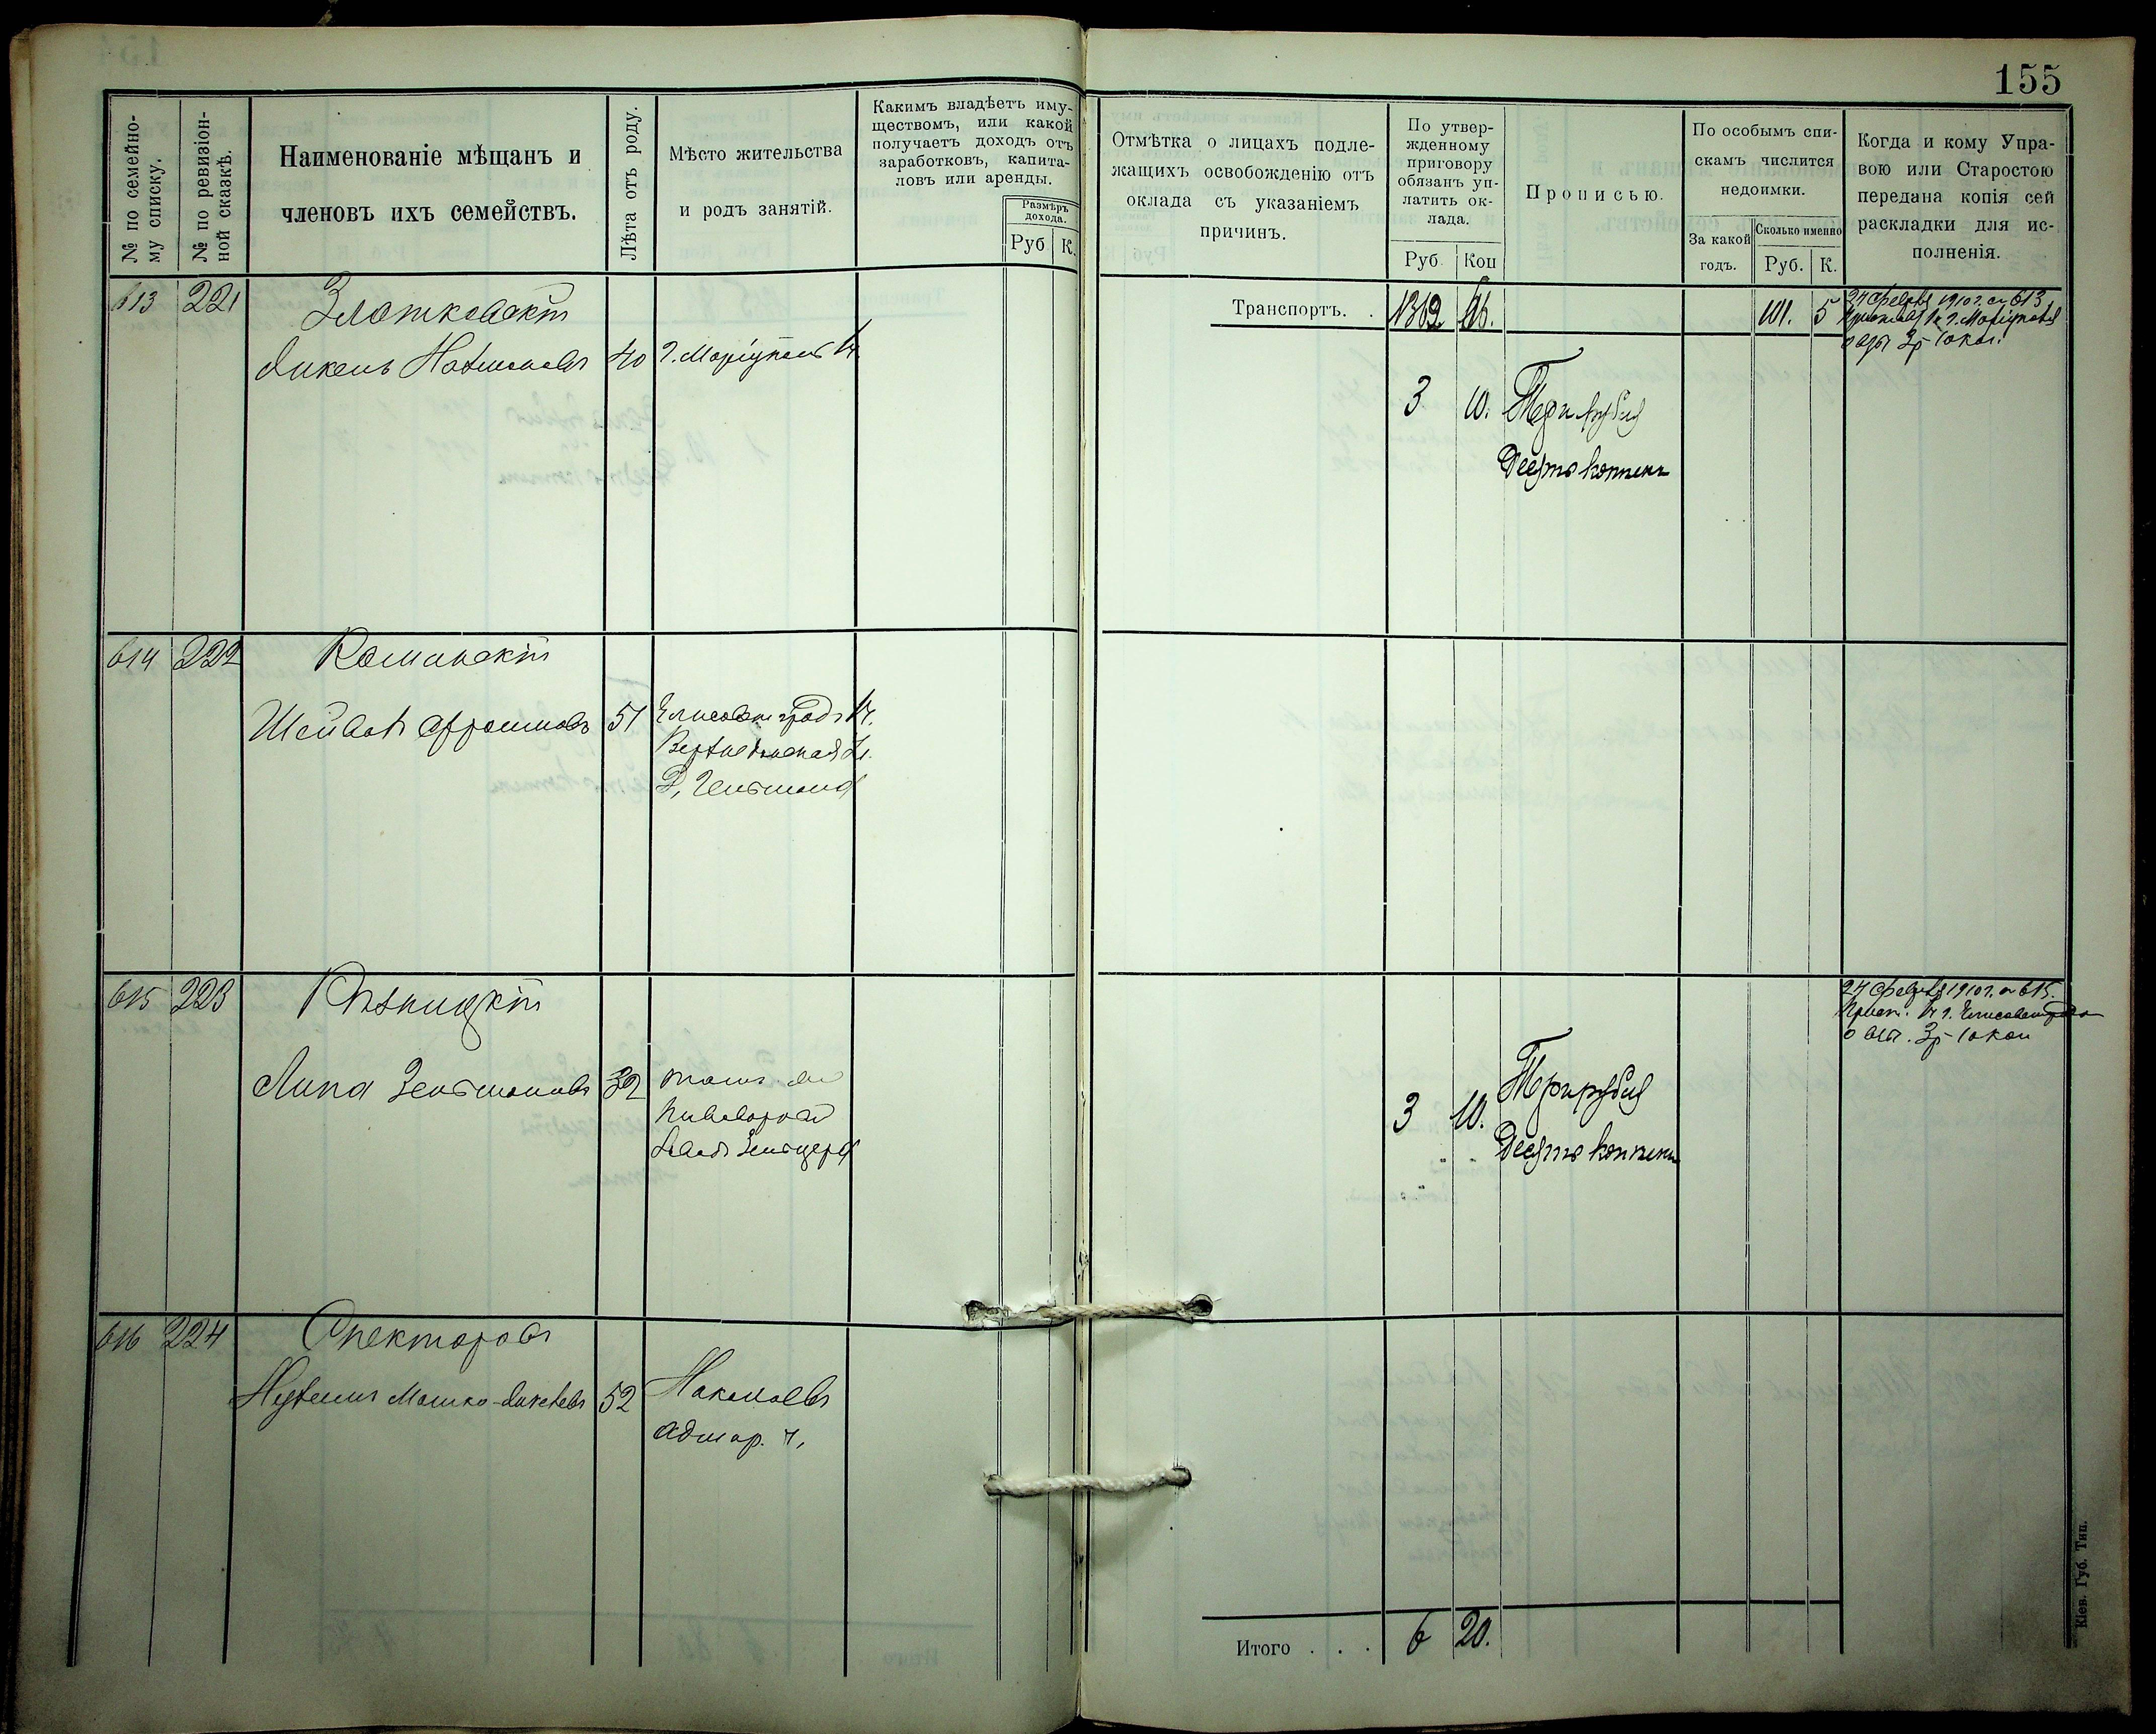 155
№ по семейно-
му списку.
№ по ревизіон-
ной сказкѣ.
Наименованіе мѣщанъ и
членовъ ихъ семействъ.
Лѣта отъ роду.
Мѣсто жительства
и родъ занятій.
Какимъ владѣетъ иму-
ществомъ, или какой
получаетъ доходъ отъ
заработковъ, капита-
ловъ или аренды.
Размѣръ
дохода.
Руб К.
Отмѣтка о лицахъ подле-
жащихъ освобожденію отъ
оклада съ указаніемъ
причинъ.
По утвер-
жденному
приговору
обязанъ уп-
латить ок-
лада.
Руб. Коп
Прописью.
По особымъ спи-
скамъ числится
недоимки.
За какой
годъ.
Сколько именно
Руб. К.
Когда и кому Упра-
вою или Старостою
передана копія сей
раскладки для ис-
полненія.
Транспортъ. .
101. 5
613 221 Златковскій
40 г. Маріуполь
3 10. Три рубля
Десять копѣекъ
24 Февраля 1910 г. за 613
г. Маріуполя
3р 10 коп.
614 222
51 Елисаветградъ
615 223 Рѣзницкій
Липа Зельмановъ 32
3 10. Три рубля
Десять копѣекъ
24 Февраля 1910 г. за 615.
Прист. г. Елисаветграда
3р 10 коп
616 224 Спекторовъ
52 Николаевъ
Адмир. ч.
Итого . . . 6 20.
Кіев. Губ. Тип.